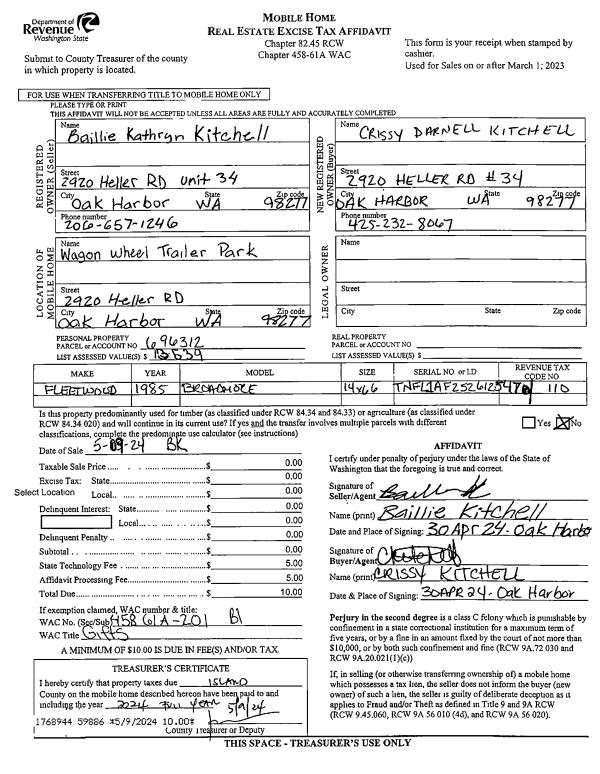 Department of
Revenue
Washington State
MOBILE HOME
REAL ESTATE EXCISE TAX AFFIDAVIT
Chapter 82.45 RCW
Chapter 458-61A WAC
Submit to County Treasurer of the county
in which property is located.
This form is your receipt when stamped by
cashier.
Used for Sales on or after March 1; 2023
FOR USE WHEN TRANSFERRING TITLE TO MOBILE HOME ONLY
PLEASE TYPE OR PRINT
THIS AFFIDAVIT WILL NOT BE ACCEPTED UNLESS ALL AREAS ARE FULLY AND ACCURATELY COMPLETED
REGISTERED OWNER (Seller)
Name
Baillie Kathryn Kitchell
Street
2920 Heller RD unit 34
City State Zip code
Oak Harbor WA 98277
Phone number
206-657-1246
NEW REGISTERED OWNER (Buyer)
Name
CRISSY DARNELL KITCHELL
Street
2920 HELLER RD # 34
City State Zip code
OAK HARBOR WA 98277
Phone number
425-232-8067
LOCATION OF MOBILE HOME
Name
Wagon Wheel Trailer Park
Street
2920 Heller RD
City State Zip code
Oak Harbor WA 98277
LEGAL OWNER
Name
Street
City State Zip code
PERSONAL PROPERTY
PARCEL or ACCOUNT NO 696312
LIST ASSESSED VALUE(S) $ 13639
REAL PROPERTY
PARCEL or ACCOUNT NO
LIST ASSESSED VALUE(S) $
MAKE YEAR MODEL SIZE SERIAL NO or I.D REVENUE TAX CODE NO
FLEETWOOD 1985 BROADMORE 14x66 110
Is this property predominantly used for timber (as classified under RCW 84.34 and 84.33) or agriculture (as classified under
RCW 84.34 020) and will continue in its current use? If yes and the transfer involves multiple parcels with different
classifications, complete the predominate use calculator (see instructions)
Yes No
Date of Sale 5-09-24 BK
Taxable Sale Price $ 0.00
Excise Tax: State $ 0.00
Select Location Local $ 0.00
Delinquent Interest: State $ 0.00
Local $ 0.00
Delinquent Penalty $ 0.00
Subtotal $ 0.00
State Technology Fee $ 5.00
Affidavit Processing Fee $ 5.00
Total Due $ 10.00
If exemption claimed, WAC number & title:
WAC No. (Sec/Sub) 458 61A-201
WAC Title Gifts
A MINIMUM OF $10.00 IS DUE IN FEE(S) AND/OR TAX.
AFFIDAVIT
I certify under penalty of perjury under the laws of the State of
Washington that the foregoing is true and correct.
Signature of
Seller/Agent
Name (print) Baillie Kitchell
Date and Place of Signing: 30 APR 24- Oak Harbor
Signature of
Buyer/Agent
Name (print) CRISSY KITCHELL
Date & Place of Signing: 30APR24- Oak Harbor
Perjury in the second degree is a class C felony which is punishable by
confinement in a state correctional institution for a maximum term of
five years, or by a fine in an amount fixed by the court of not more than
$10,000, or by both such confinement and fine (RCW 9A.72 030 and
RCW 9A.20.021(1)(c))
If, in selling (or otherwise transferring ownership of) a mobile home
which possesses a tax lien, the seller does not inform the buyer (new
owner) of such a lien, the seller is guilty of deliberate deception as it
applies to Fraud and/or Theft as defined in Title 9 and 9A RCW
(RCW 9.45.060, RCW 9A 56 010 (4d), and RCW 9A 56 020).
TREASURER'S CERTIFICATE
I hereby certify that property taxes due ISLAND
County on the mobile home described hereon have been paid to and
including the year 2024 Full Year 5/9/24
1768944 59886 *5/9/2024 10.00*
County Treasurer or Deputy
THIS SPACE - TREASURER'S USE ONLY